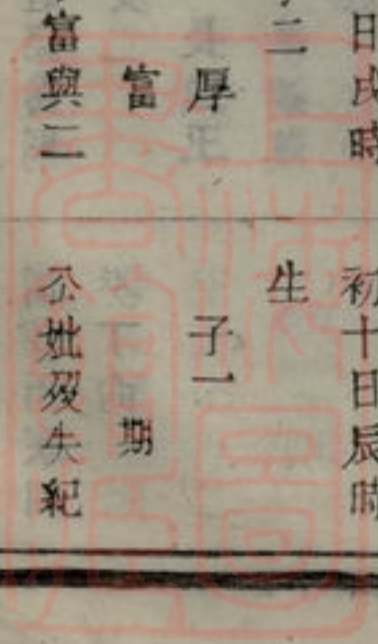 日戌時
初十日辰時
二
生
厚
子一
富
期
富與二
公妣歿失紀